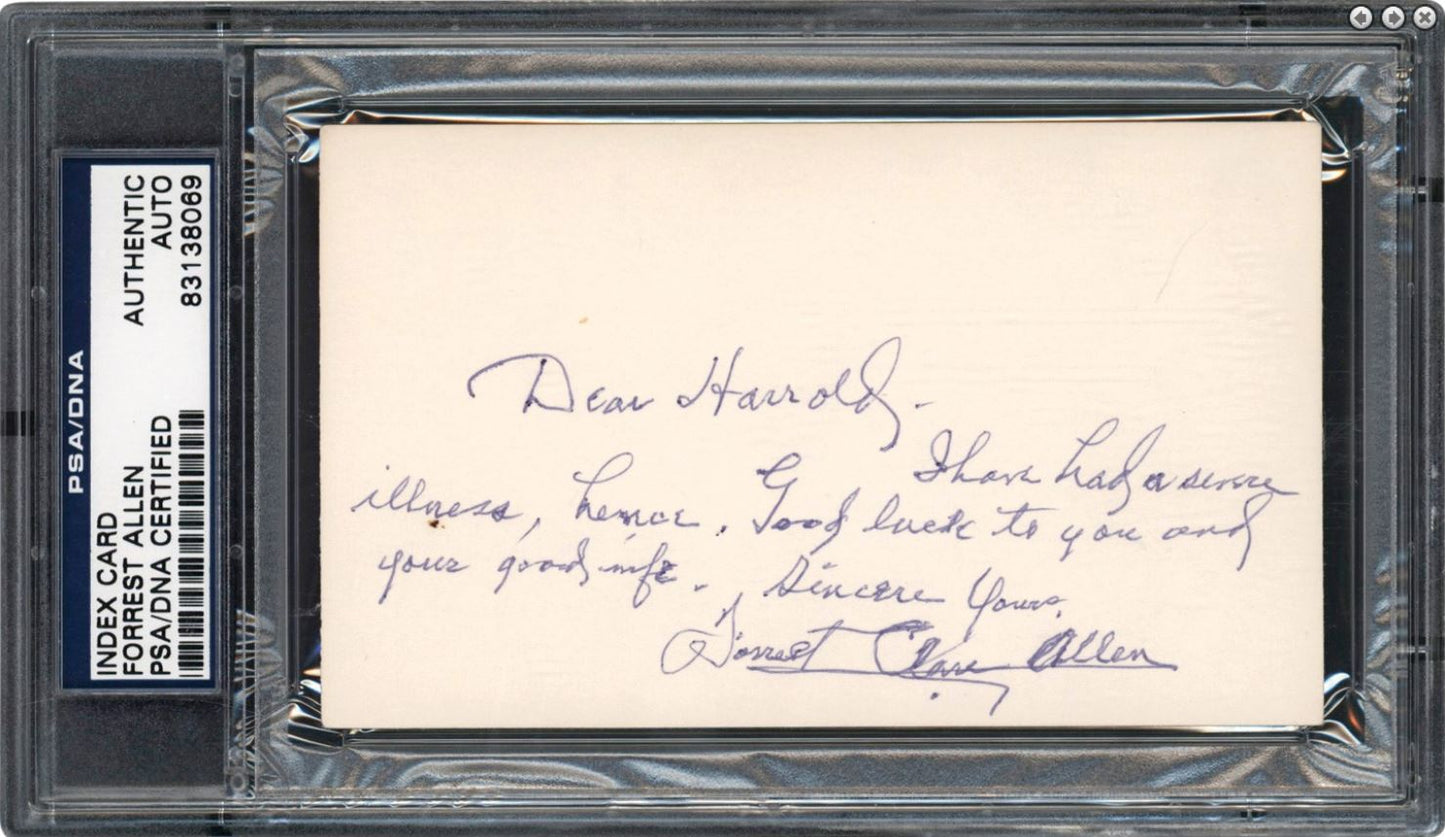 PSA/DNA
INDEX CARD AUTHENTIC
FORREST ALLEN AUTO
PSA/DNA CERTIFIED 83138069
Dear Harrold -
I have had a severe
illness, . Good luck to you and
your good wife. Sincere Yours,
Forrest Clare Allen